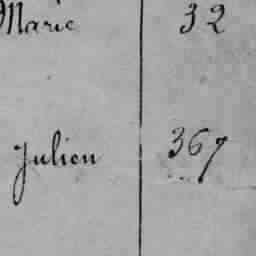 Marie 32
Julien 367